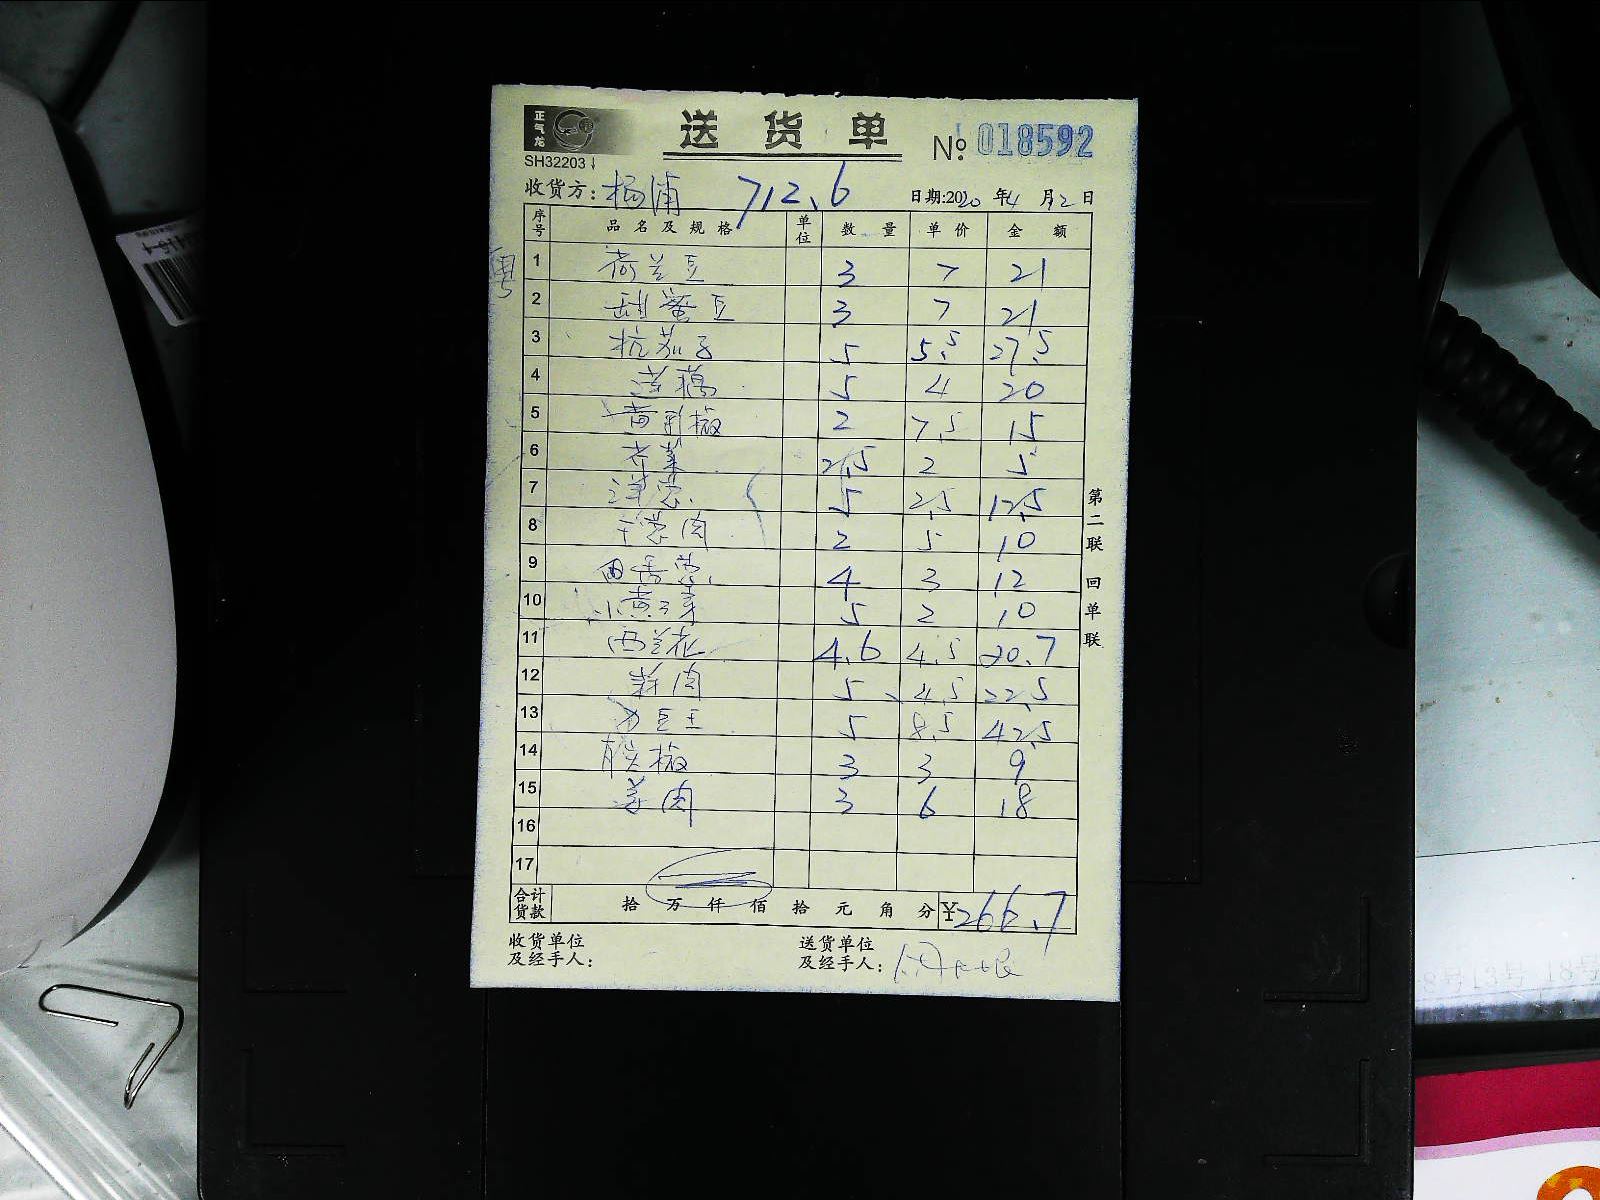 正气龙
送货单
SH32203
№ 018592
收货方：杨浦 712.6 日期:2020年4月2日
序号 品名及规格 单位 数量 单价 金额
1 荷兰豆 3 7 21
2 甜蜜豆 3 7 21
3 杭茄子 5 5.5 27.5
4 莲藕 5 4 20
5 黄彩椒 2 7.5 15
6 芹菜 2.5 2 5
7 洋葱 5 2.5 12.5
8 干葱肉 2 5 10
9 西香葱 4 3 12
10 小黄豆芽 5 2 10
11 西兰花 4.6 4.5 20.7
12 肉 5 4.5 22.5
13 豆王 5 8.5 42.5
14 尖椒 3 3 9
15 姜肉 3 6 18
16
17
合计货款 拾 万 仟 佰 拾 元 角 分 ¥266.7
收货单位及经手人：
送货单位及经手人：
第二联 回单联